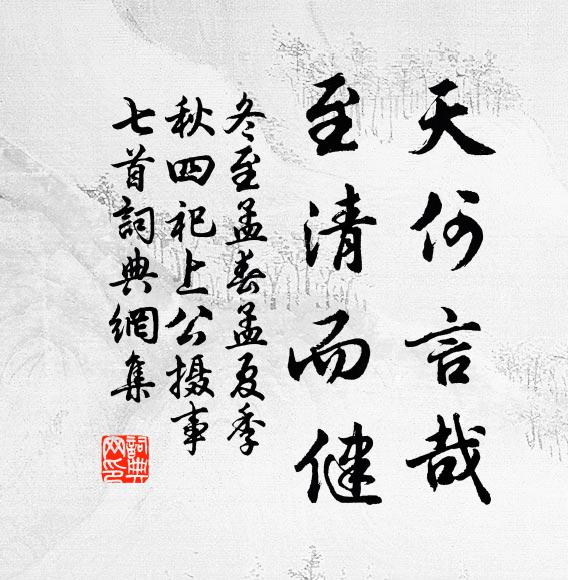 天何言哉
至清而健
冬至孟春孟夏季
秋四祀上公摄事
七首詞典網集
詞典网印